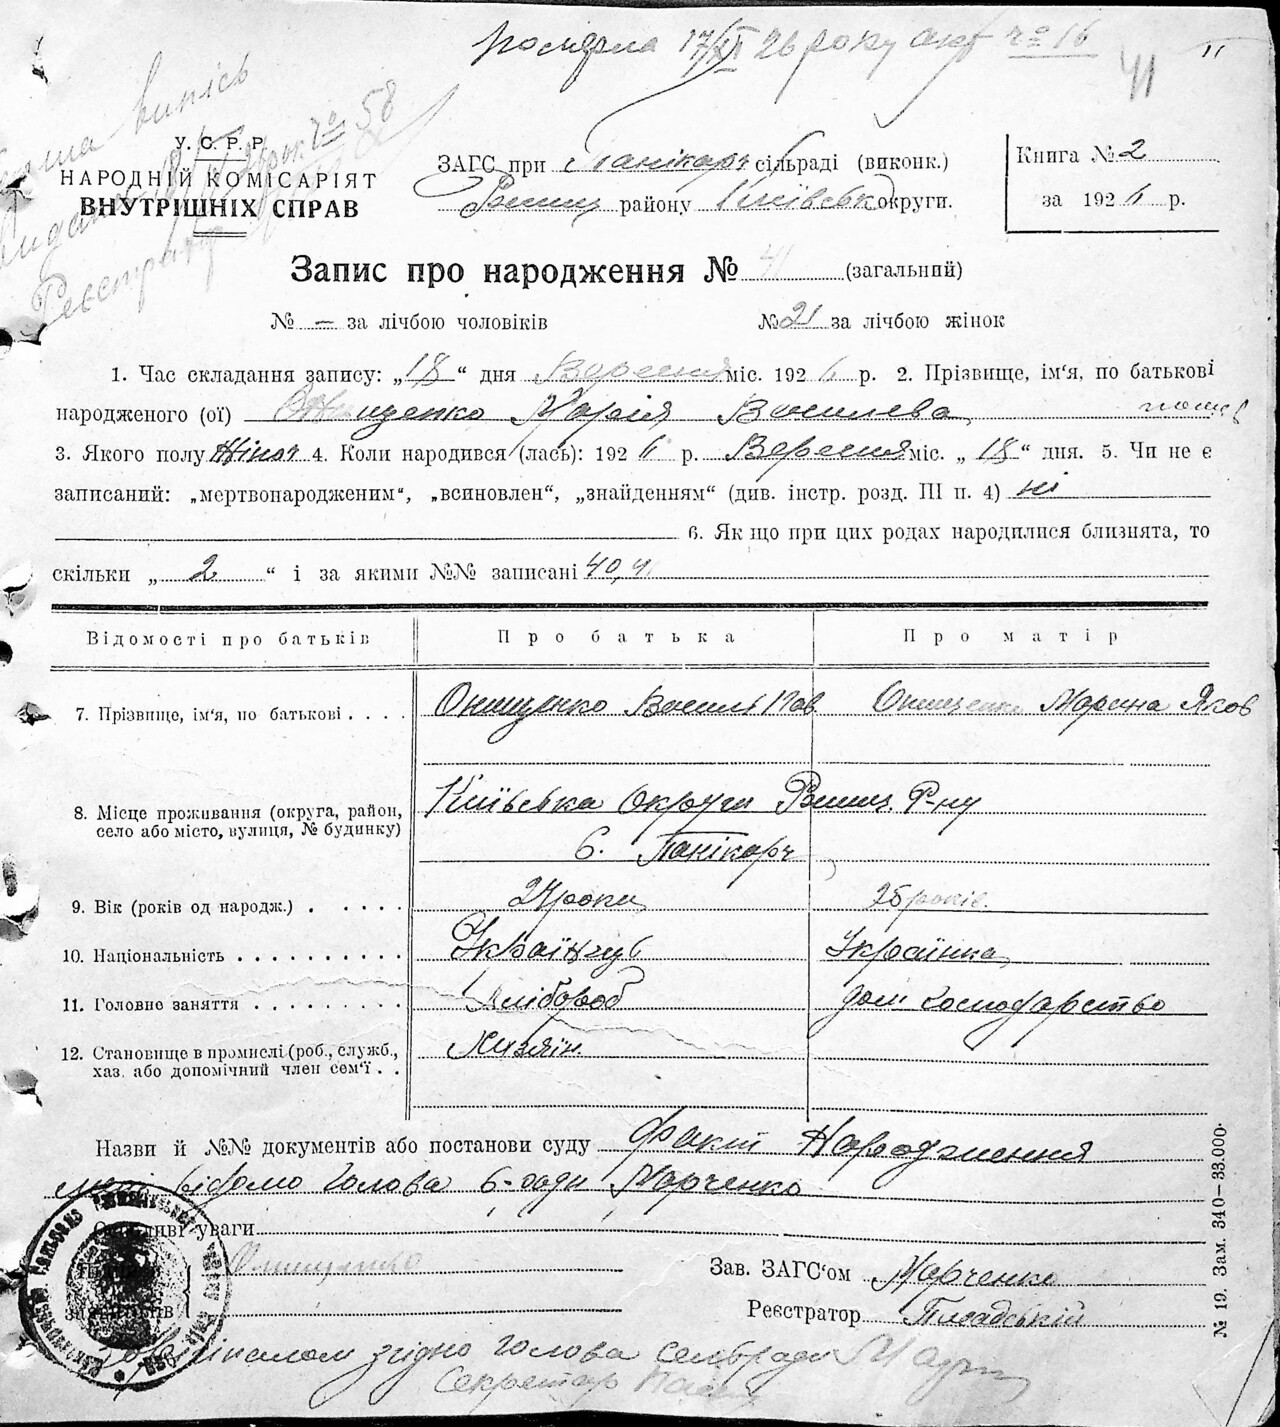 померла 17/XII 26 року акт № 16
41
11
випись
№ 58
У. С. Р. Р.
НАРОДНІЙ КОМІСАРІЯТ
ВНУТРІШНІХ СПРАВ
ЗАГС при Панікарч сільраді (виконк.)
Ржищ району Київськ округи.
Книга № 2
за 1926 р.
Запис про народження № 41 (загальний)
№ — за лічбою чоловіків
№ 21 за лічбою жінок
1. Час складання запису: „18“ дня Вересня міс. 1926 р. 2. Прізвище, ім‘я, по батькові
народженого (ої) Онищенко Марія Василева
3. Якого полу Жіноч 4. Коли народився (лась): 1926 р. Вересня міс. „18“ дня. 5. Чи не є
записаний: „мертвонародженим“, „всиновлен“, „знайденням“ (див. інстр. розд. III п. 4) ні
6. Як що при цих родах народилися близнята, то
скільки „2“ і за якими №№ записані 40,41
Відомості про батьків
Про батька
Про матір
7. Прізвище, ім‘я, по батькові . . . .
Онищенко Василь Пав
Онищенко Марина Яков
8. Місце проживання (округа, район,
село або місто, вулиця, № будинку)
Київська Округи Ржищ. Р-ну
с. Панікарч
9. Вік (років од народж.) . . . . .
24 роки
25 років.
10. Національність . . . . . . . . . .
Українець
Українка
11. Головне заняття . . . . . . . . .
Хлібороб
дом господарство
12. Становище в промислі (роб., служб.,
хаз. або допомічний член сем‘ї . .
Хазяїн.
Назви й №№ документів або постанови суду факт Народження
мені відомо Голова с-ради Марченко
Особливі уваги
Онищенко
Зав. ЗАГС‘ом Марченко
Реєстратор
згідно Голова сельради
Секретар
№ 19. Зам. 340—33.000.